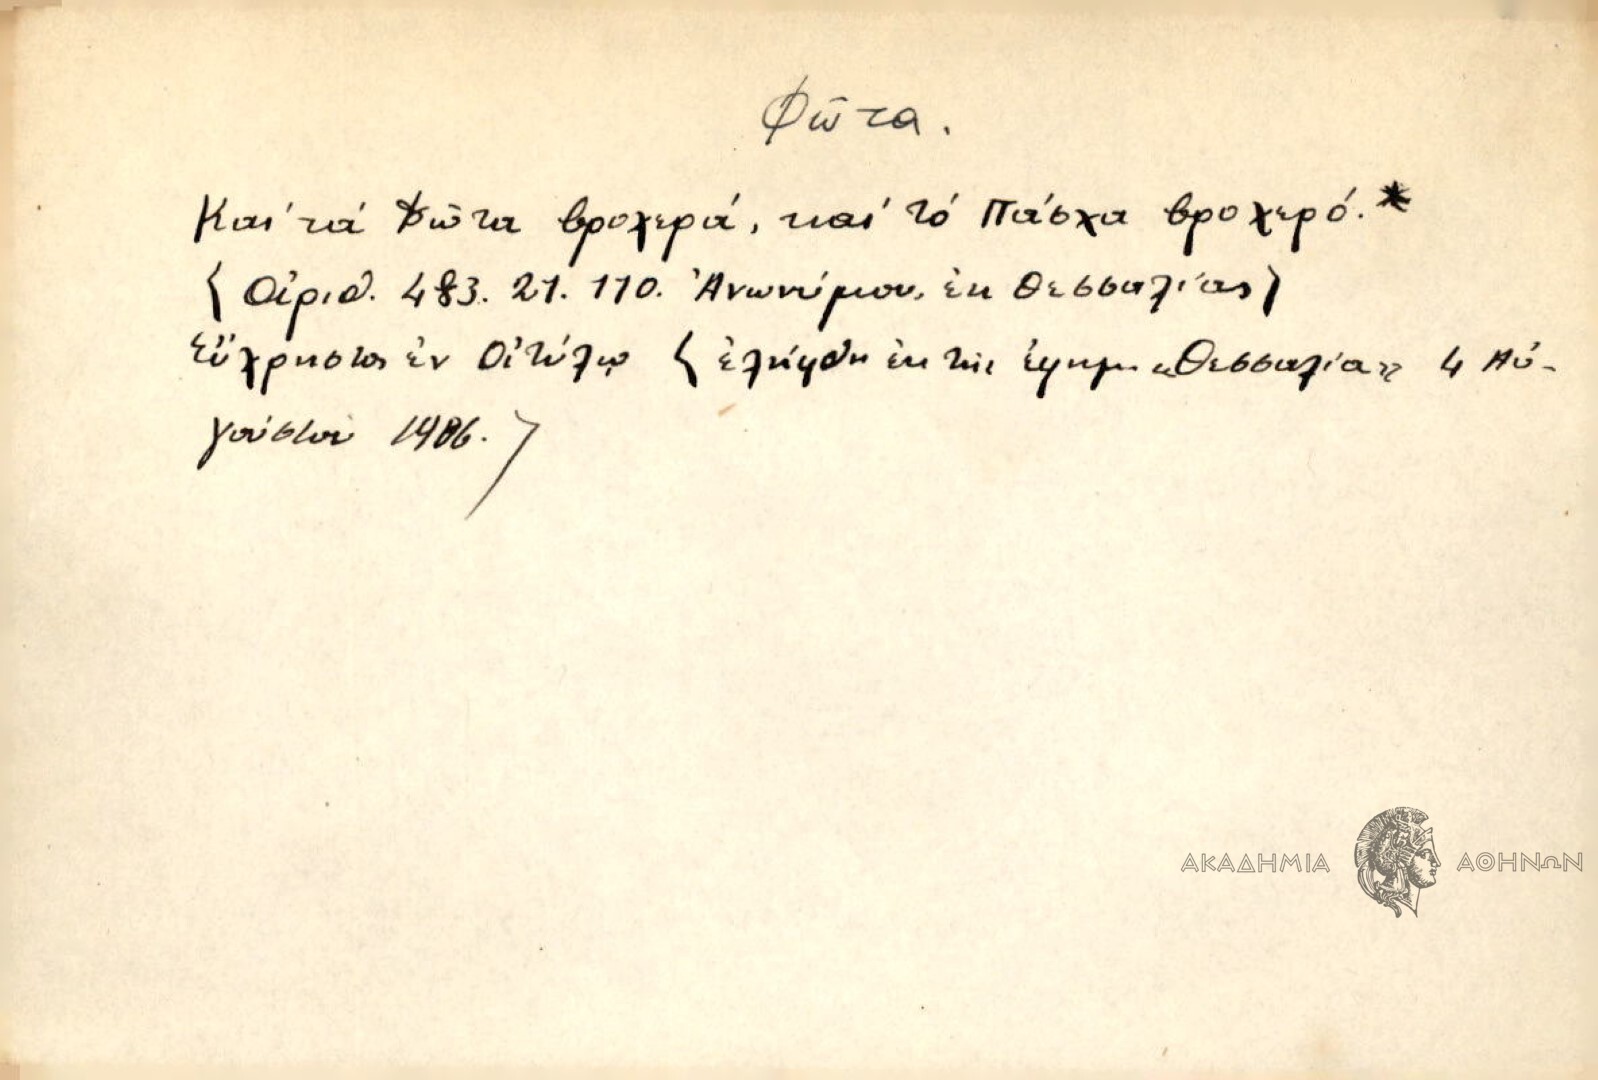 Φῶτα.
Καί τά Φῶτα βροχερά, καί τό Πάσχα βροχερό.*
(Ἀριθ. 483. 21. 110. Ἀνωνύμου, ἐκ Θεσσαλίας)
Εὔχρηστος ἐν Οἰτύλῳ (ἐλήφθη ἐκ τῆς ἐφημ. «Θεσσαλία» 4 Αὐ-
γούστου 1906.)
ΑΚΑΔΗΜΙΑ ΑΘΗΝΩΝ